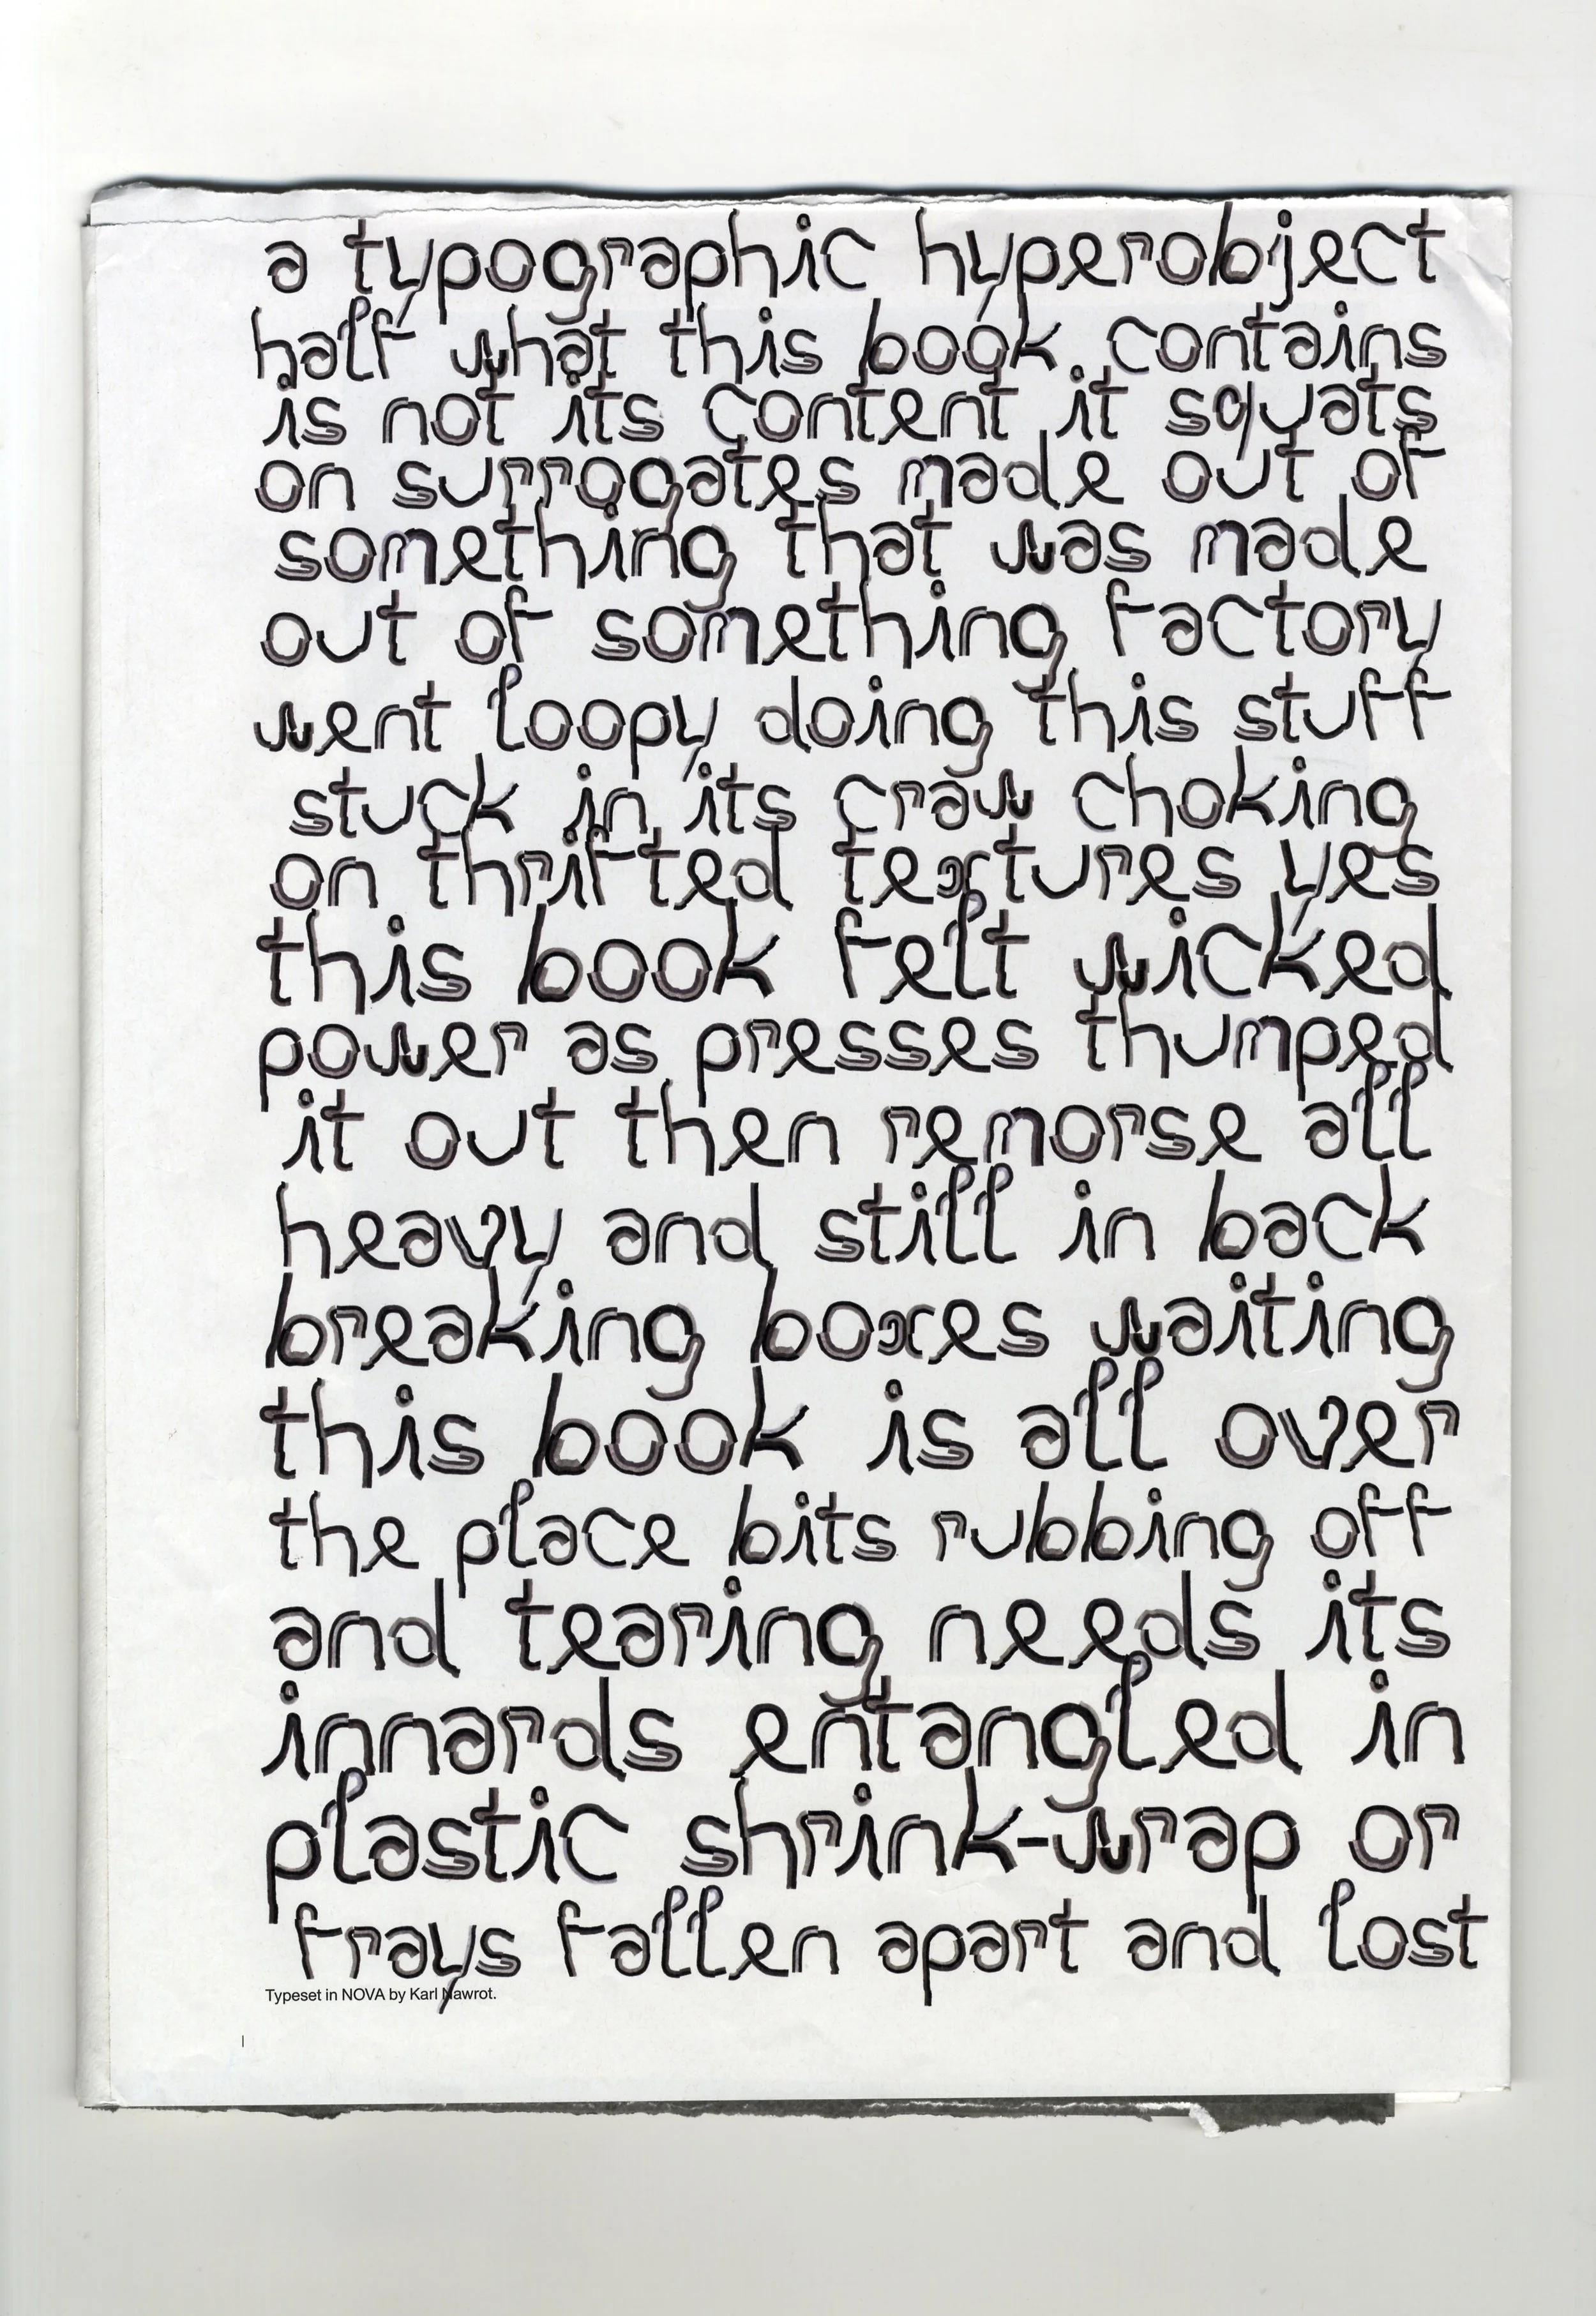 a typographic hyperobject
half what this book contains
is not its content it squats
on surrogates made out of
something that was made
out of something factory
went loopy doing this stuff
stuck in its craw choking
on thrifted textures yes
this book felt wicked
power as presses thumped
it out then remorse all
heavy and still in back
breaking boxes waiting
this book is all over
the place bits rubbing off
and tearing needs its
innards entangled in
plastic shrink-wrap or
frays fallen apart and lost
Typeset in NOVA by Karl Nawrot.